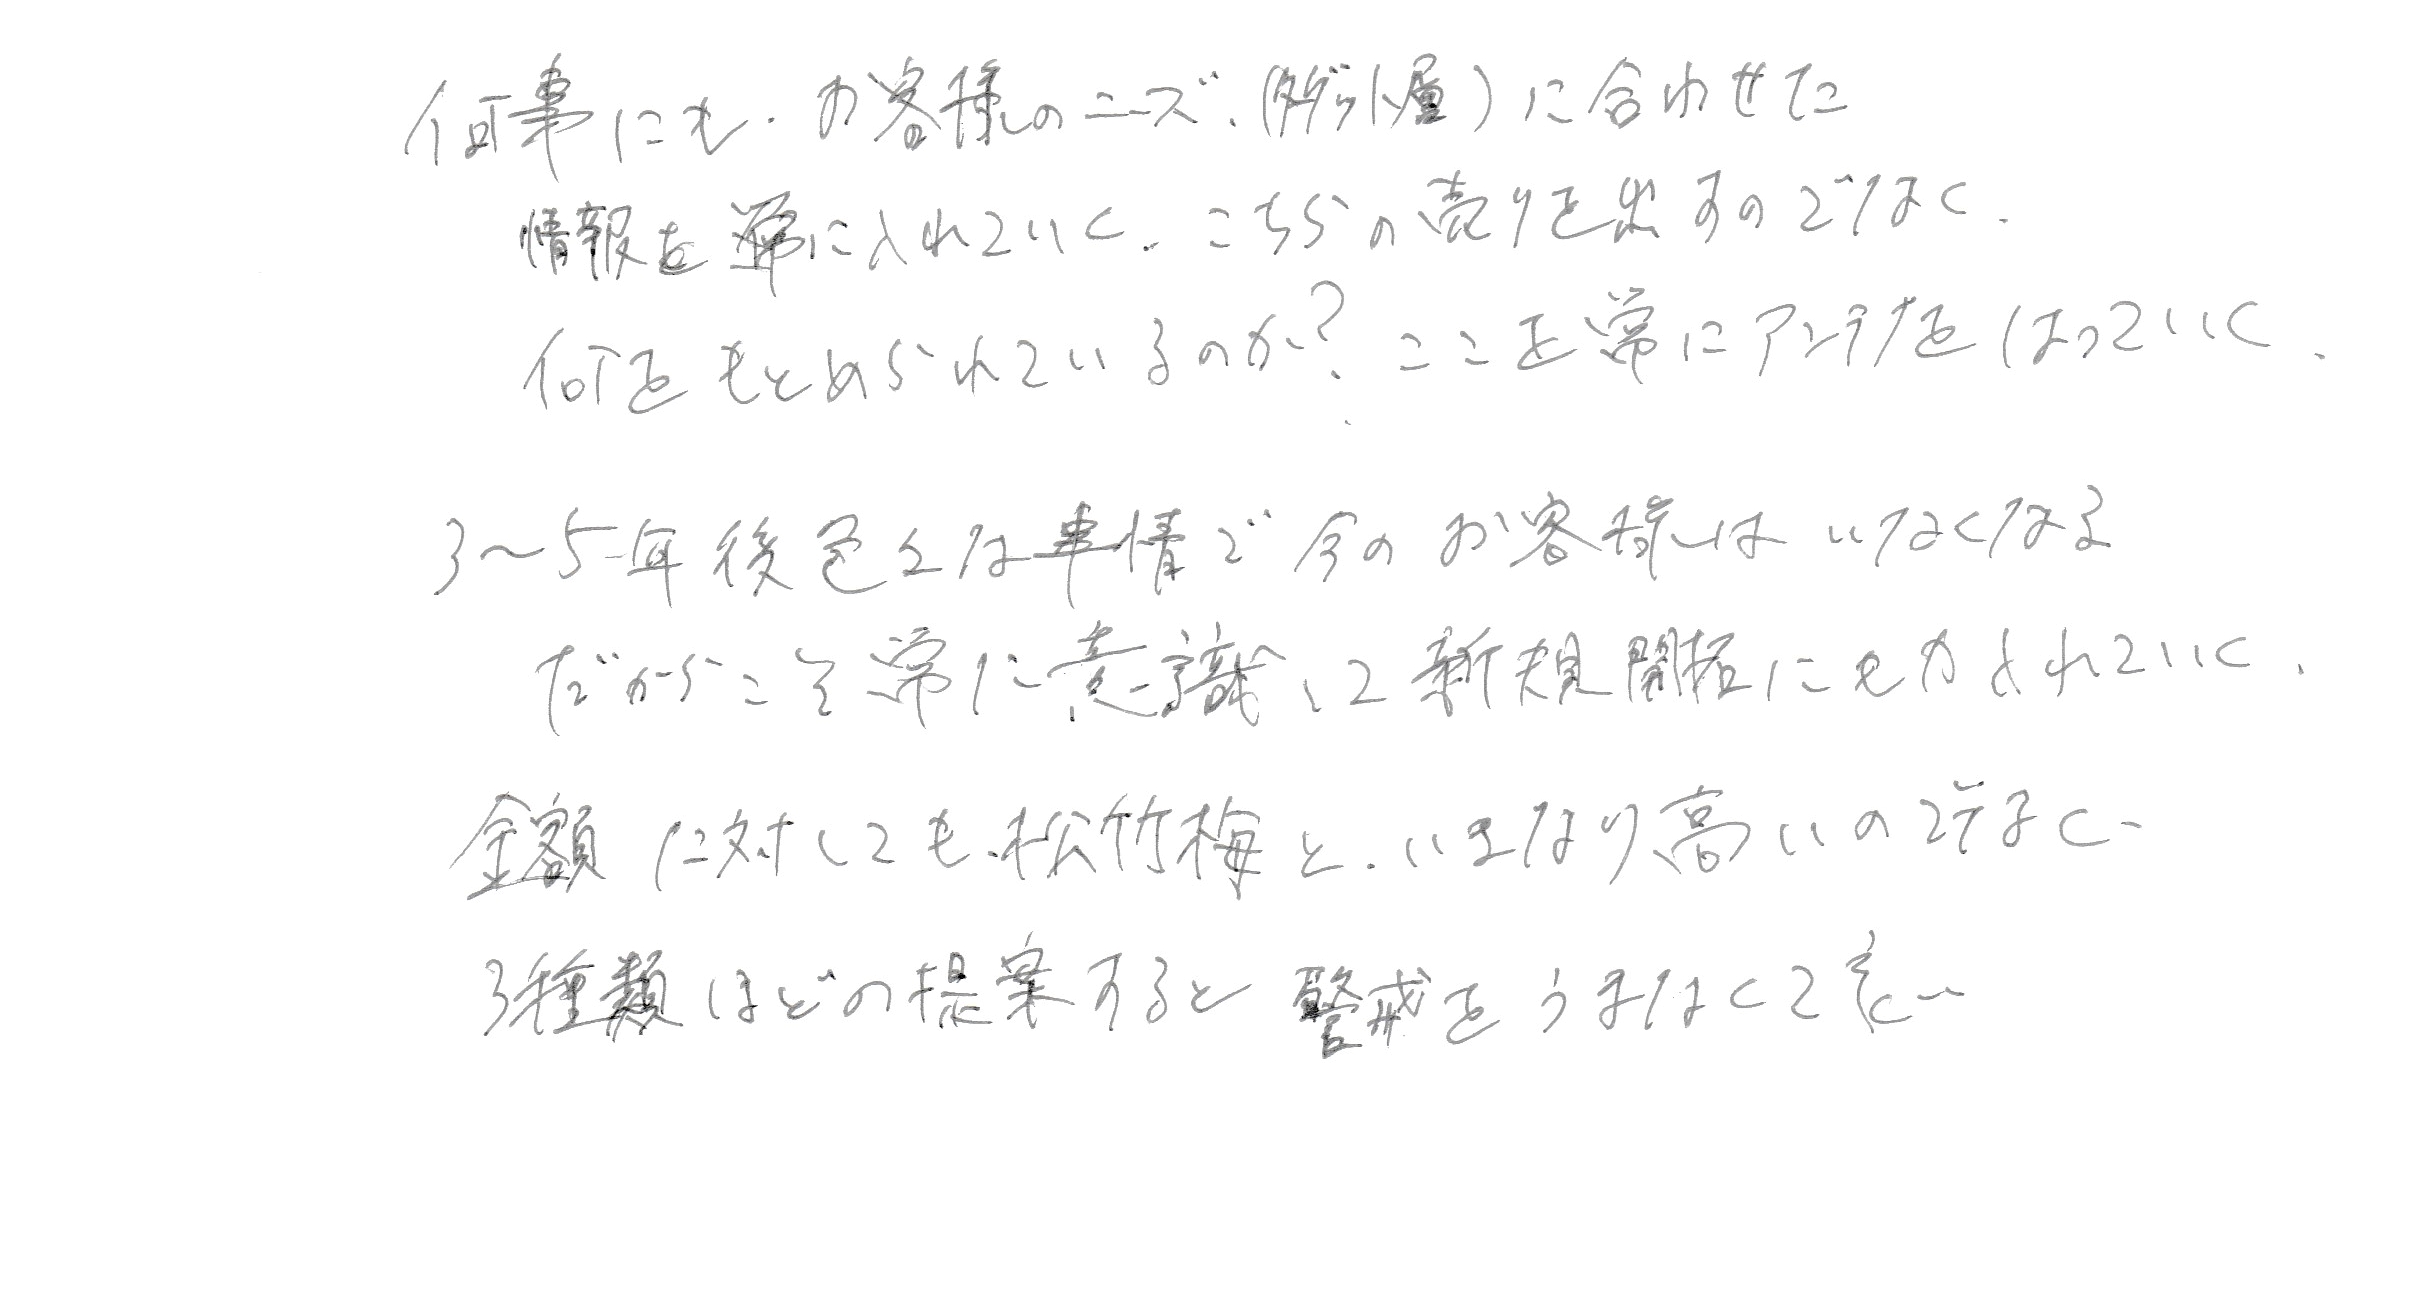 何事にも、お客様のニーズ、(ターゲット層)に合わせた
情報を常に入れていく、こちらの売りを出すのでなく、
何をもとめられているのか?ここを常にアンテナをはっていく、
3〜5年後色々な事情で今のお客様はいなくなる
だからこそ常に意識して新規開拓にも力入れていく、
金額に対しても、松竹梅と、いきなり高いのでなく、
3種類ほどの提案すると警戒をうまなくて良い